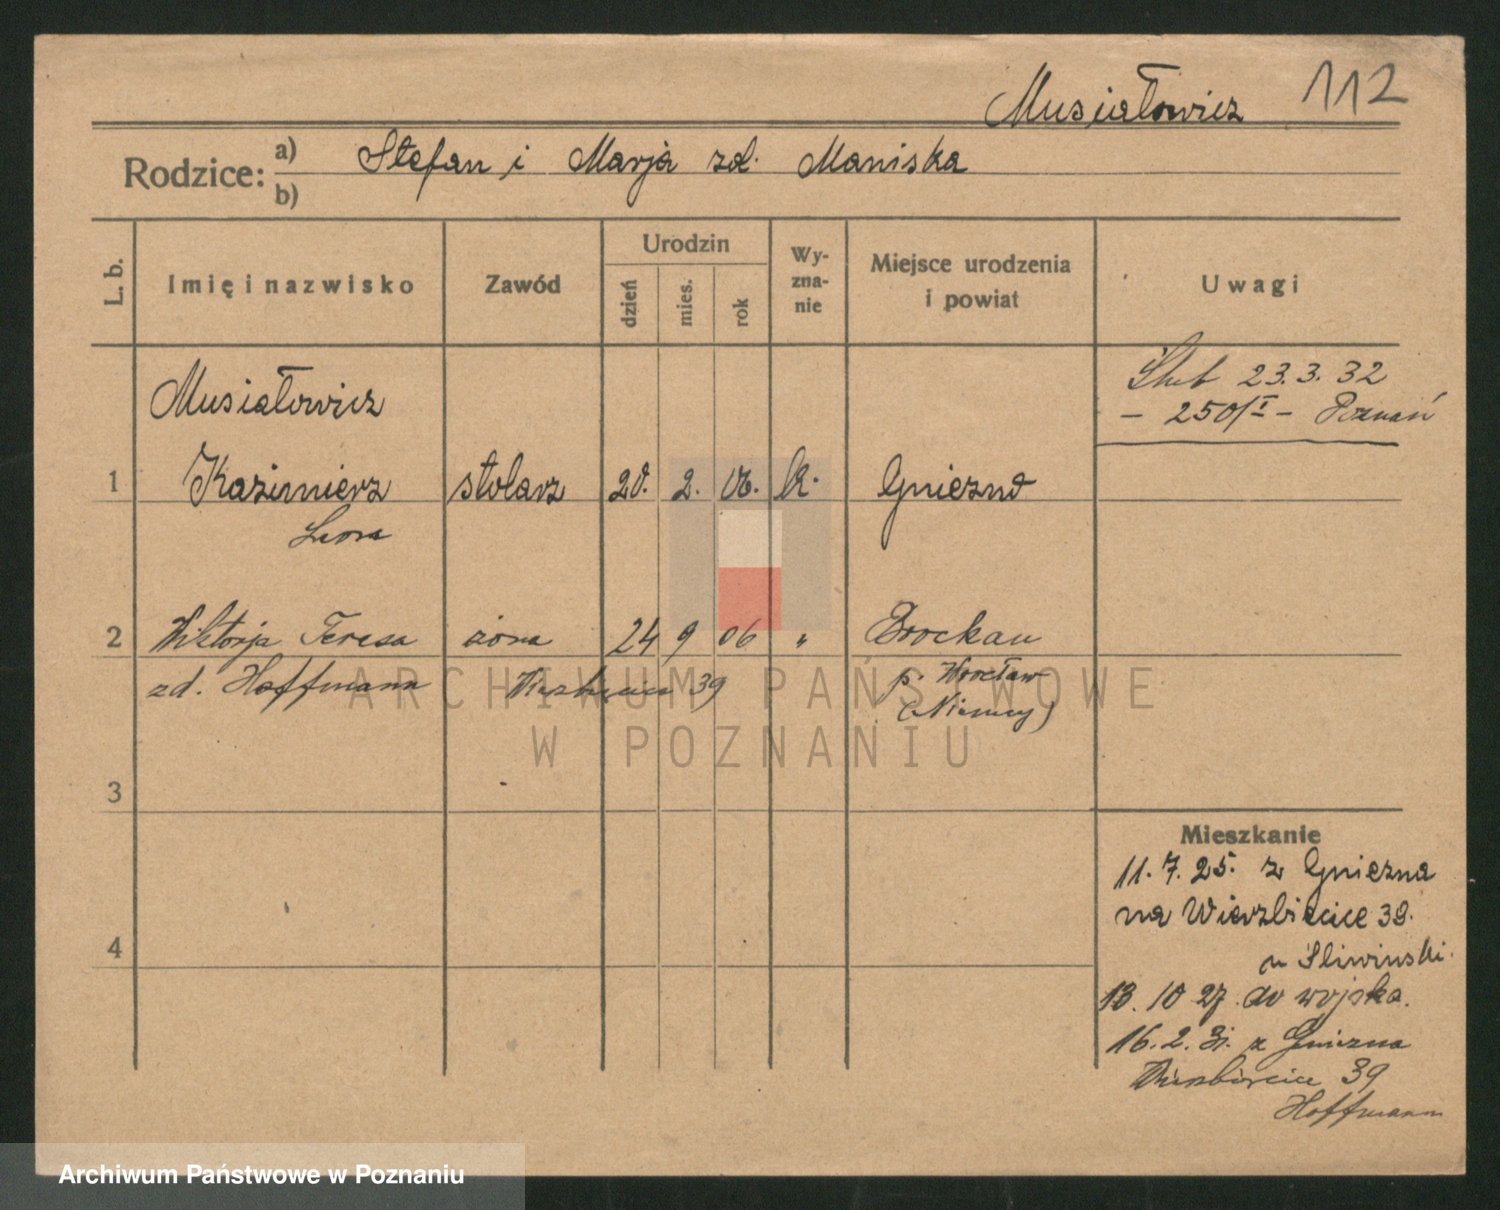 Musiałowicz 112
Rodzice: a) Stefan i Marja zd. Maniska
b)
L. b. Imię i nazwisko Zawód Urodzin dzień mies. rok Wyznanie Miejsce urodzenia i powiat Uwagi
Ślub 23.3.32
- 250/I - Poznań
Musiałowicz
1 Kazimierz stolarz 20. 2. 06. k. Gniezno
2 Wiktorja Teresa żona 24 9 06 " Brockau
zd. Hoffmann Wierzbięcice 39 p. Wrocław
(Niemcy)
3
4
Mieszkanie
11.7.25. z Gniezna
na Wierzbięcice 39.
u Śliwiński.
13.10 27. do wojska.
16.2.31. z Gniezna
Wierzbięcice 39
Hoffmann
ARCHIWUM PAŃSTWOWE
W POZNANIU
Archiwum Państwowe w Poznaniu